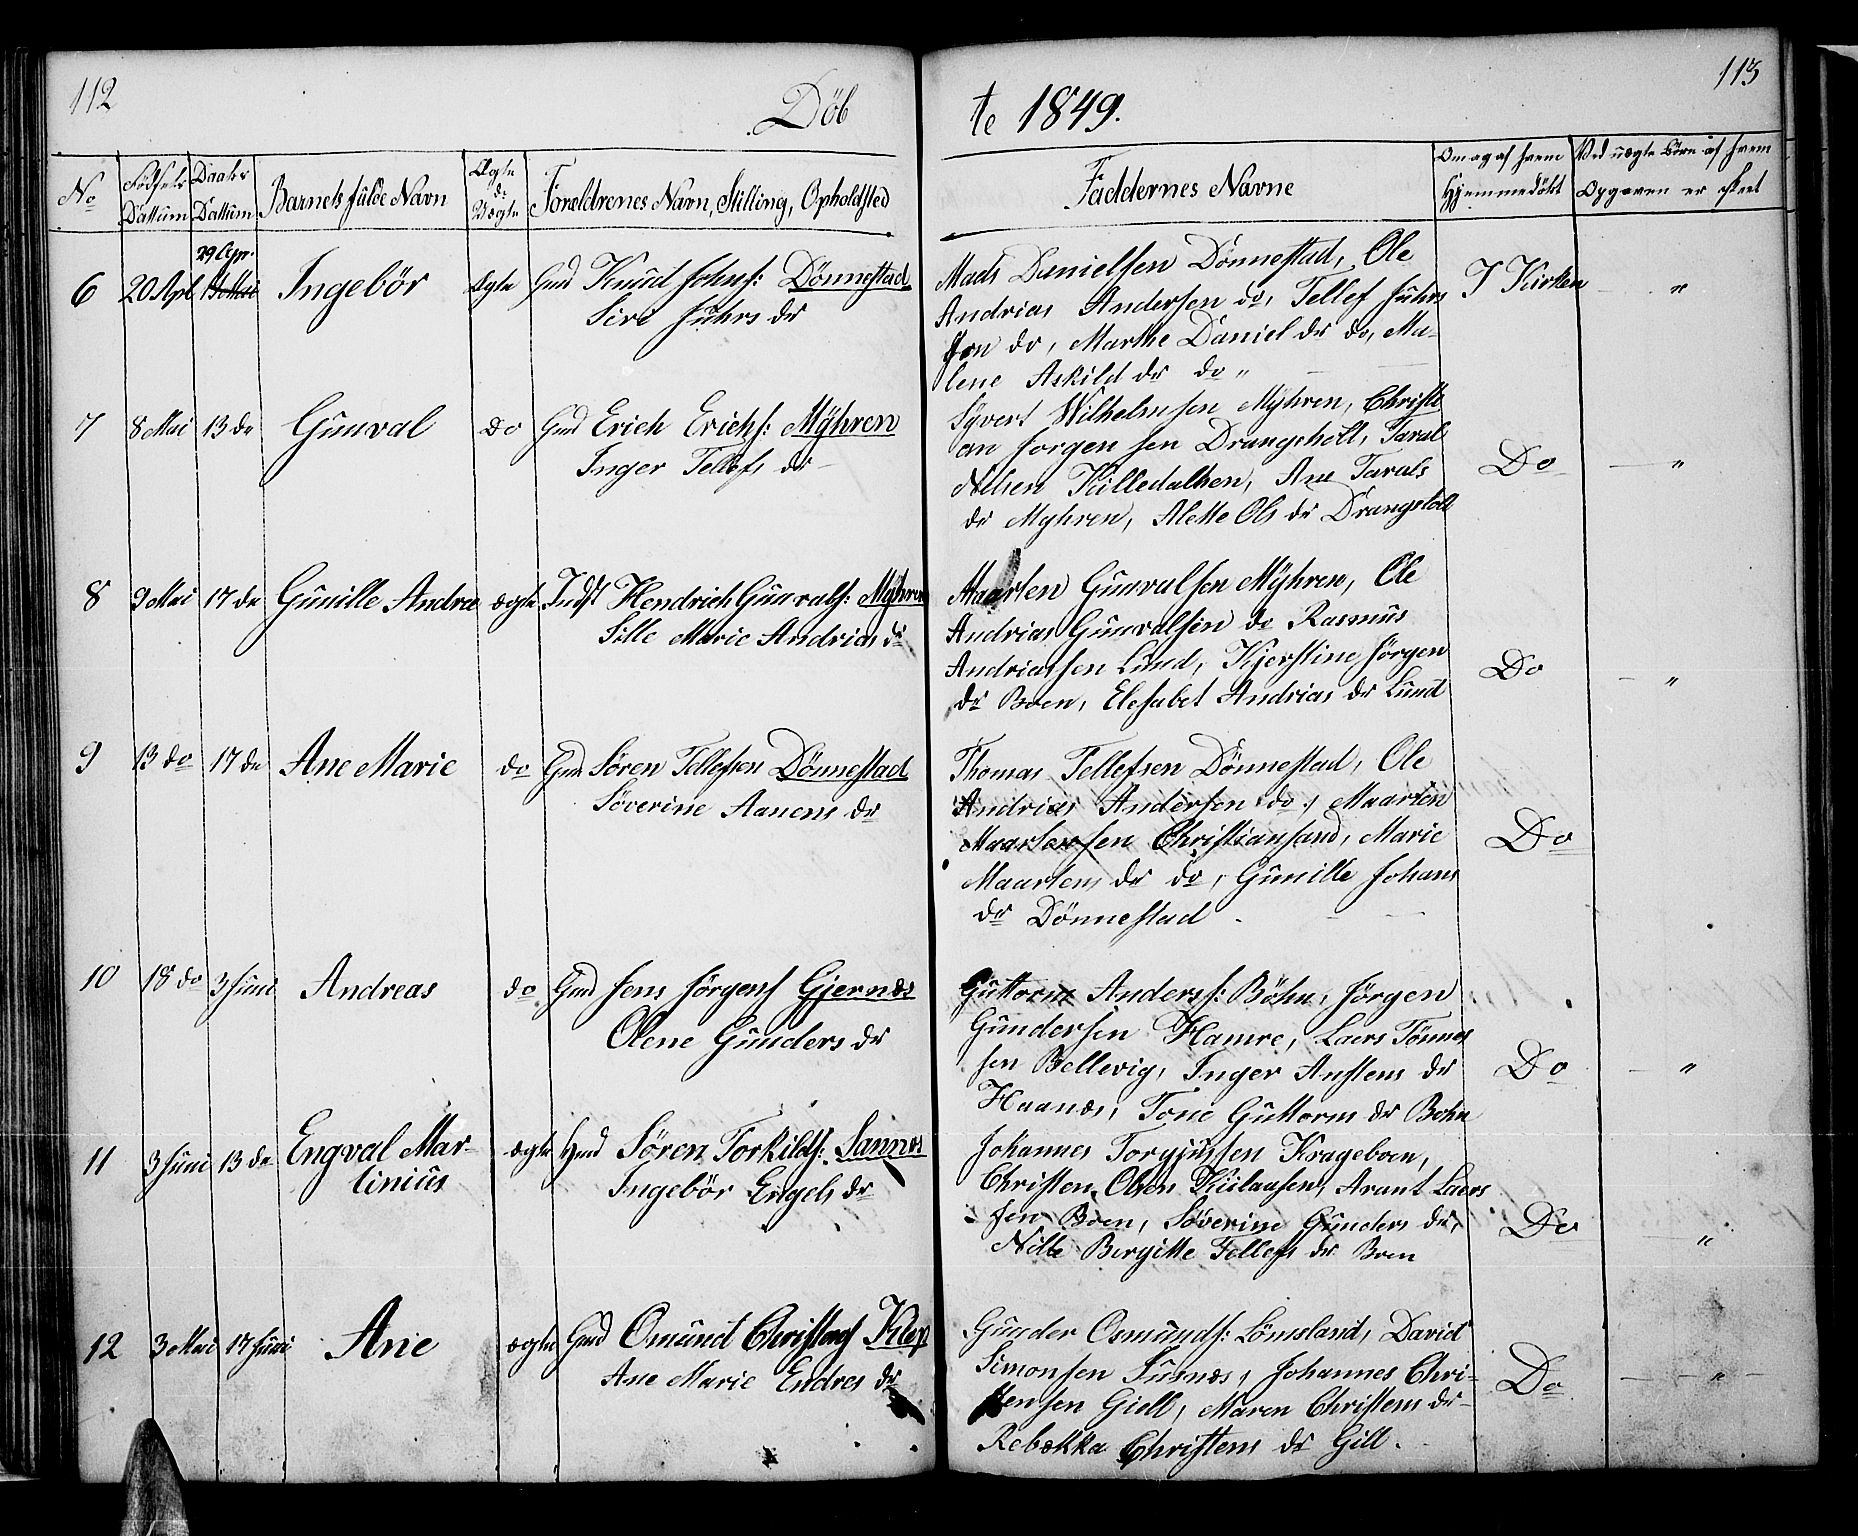 112
Döb
te 1849.
113
No
Födsels Dattum
Daabs Dattum
Barnets fulde Navn
Ægte do Uægte
Forældrenes Navn, Stilling, Opholdsted
Faddernes Navne
Om og af hvem Hjemmedöbt
Ved uægte Börn af hvem Opgaven er skeet
29 Apr.
6 20 Apl Ingebör Ægte Gmd Knud Johns: Dönnestad
Siri Juhrs dr
Mads Danielsen Dönnestad, Ole
Andrias Andersen do, Tellef Juhrs
sen do, Marthe Daniel dr do, Ma-
lene Askild dr do "
I Kirken "
7 8 Mai 13 do Gunval do Gmd Erich Erichs: Mÿhren
Inger Tellefs dr
Syvert Wilhelmsen Mÿhren, Christi
an Jorgensen Drangsholt, Taral
Nilsen Kulledalhen, Ane Tarals
dr Myhren, Alette Ols dr Drangsholt
Do "
8 9 Mai 17 do Gunille Andrea ægte Indst Hendrich Gunvals: Mÿhren
Sille Marie Andrias dr
Maarten Gunvalsen Mÿhren, Ole
Andrias Gunvalsen do Rasmus
Andriassen Lund, Kjerstine Jörgen
dr Boen, Elesabet Andrias dr Lund
Do "
9 13 do 17 do Ane Marie do Gmd Sören Tellefsen Dönnestad
Söverine Aanens dr
Thomas Tellefsen Dönnestad, Ole
Andrias Andersen do, Maarten
Maartensen Christiansand, Marie
Maartens dr do, Gunille Johans
dr Dönnestad
Do
10 18 do 3 Juni Andreas do Gmd Jens Jörgens Gjernæs
Olene Gunders dr
Guttorm Anderss: Böhn, Jörgen
Gundersen Hamre, Laers Tönnes
sen Bellevig, Inger Anstens dr
Haanes, Tone Guttorms dr Bohn
Do "
11 3 Juni 13 do Engval Mar-
tinius ægte Hmd Sören Torkilds: Sannes
Ingebör Engels dr
Johannes Torgjussen Krageboen,
Christen Olsen Kulausen, Arant Laers
sen Boen, Söverine Gunders dr,
Nille Bergitte Tellefs dr Boen
Do "
12 3 Mai 17 Juni Ane ægte Gmd Omund Christens Klep
Ane Marie Endres dr
Gunder Osmunds: Lömsland, David
Simonsen Fusnæs, Johannes Chri-
stensen Giell, Maren Christens dr
Rebækka Christens dr Gill.
Do "